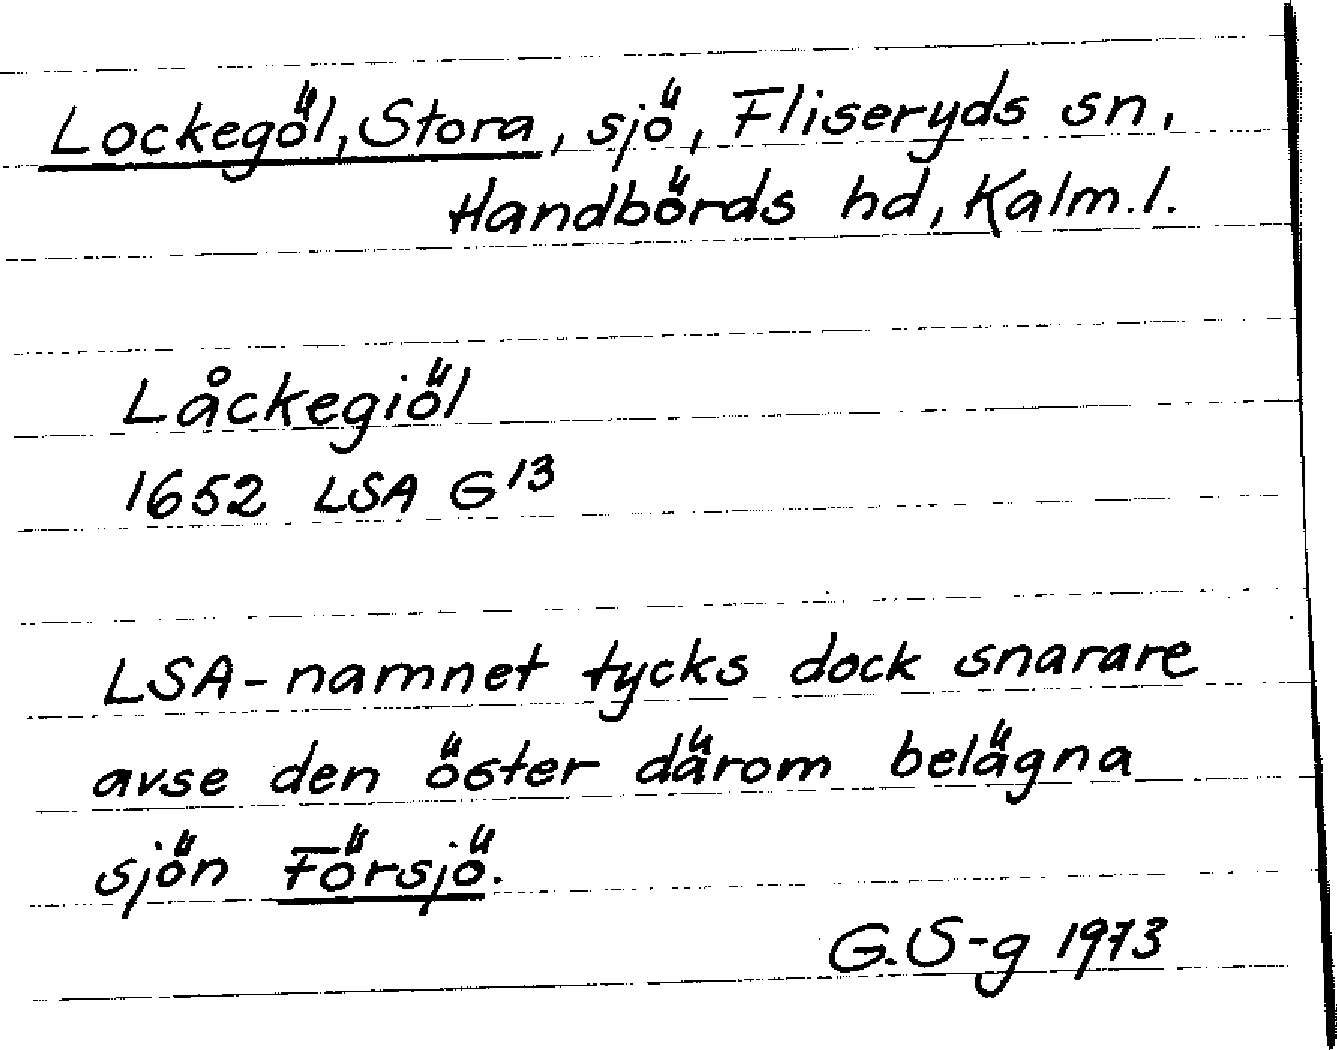 Lockegöl, Stora, sjö, Fliseryds sn,
Handbörds hd, Kalm. l.
Låckegiöl
1652 LSA G¹³
LSA-namnet tycks dock snarare
avse den öster därom belägna
sjön Försjö.
G. S-g 1973